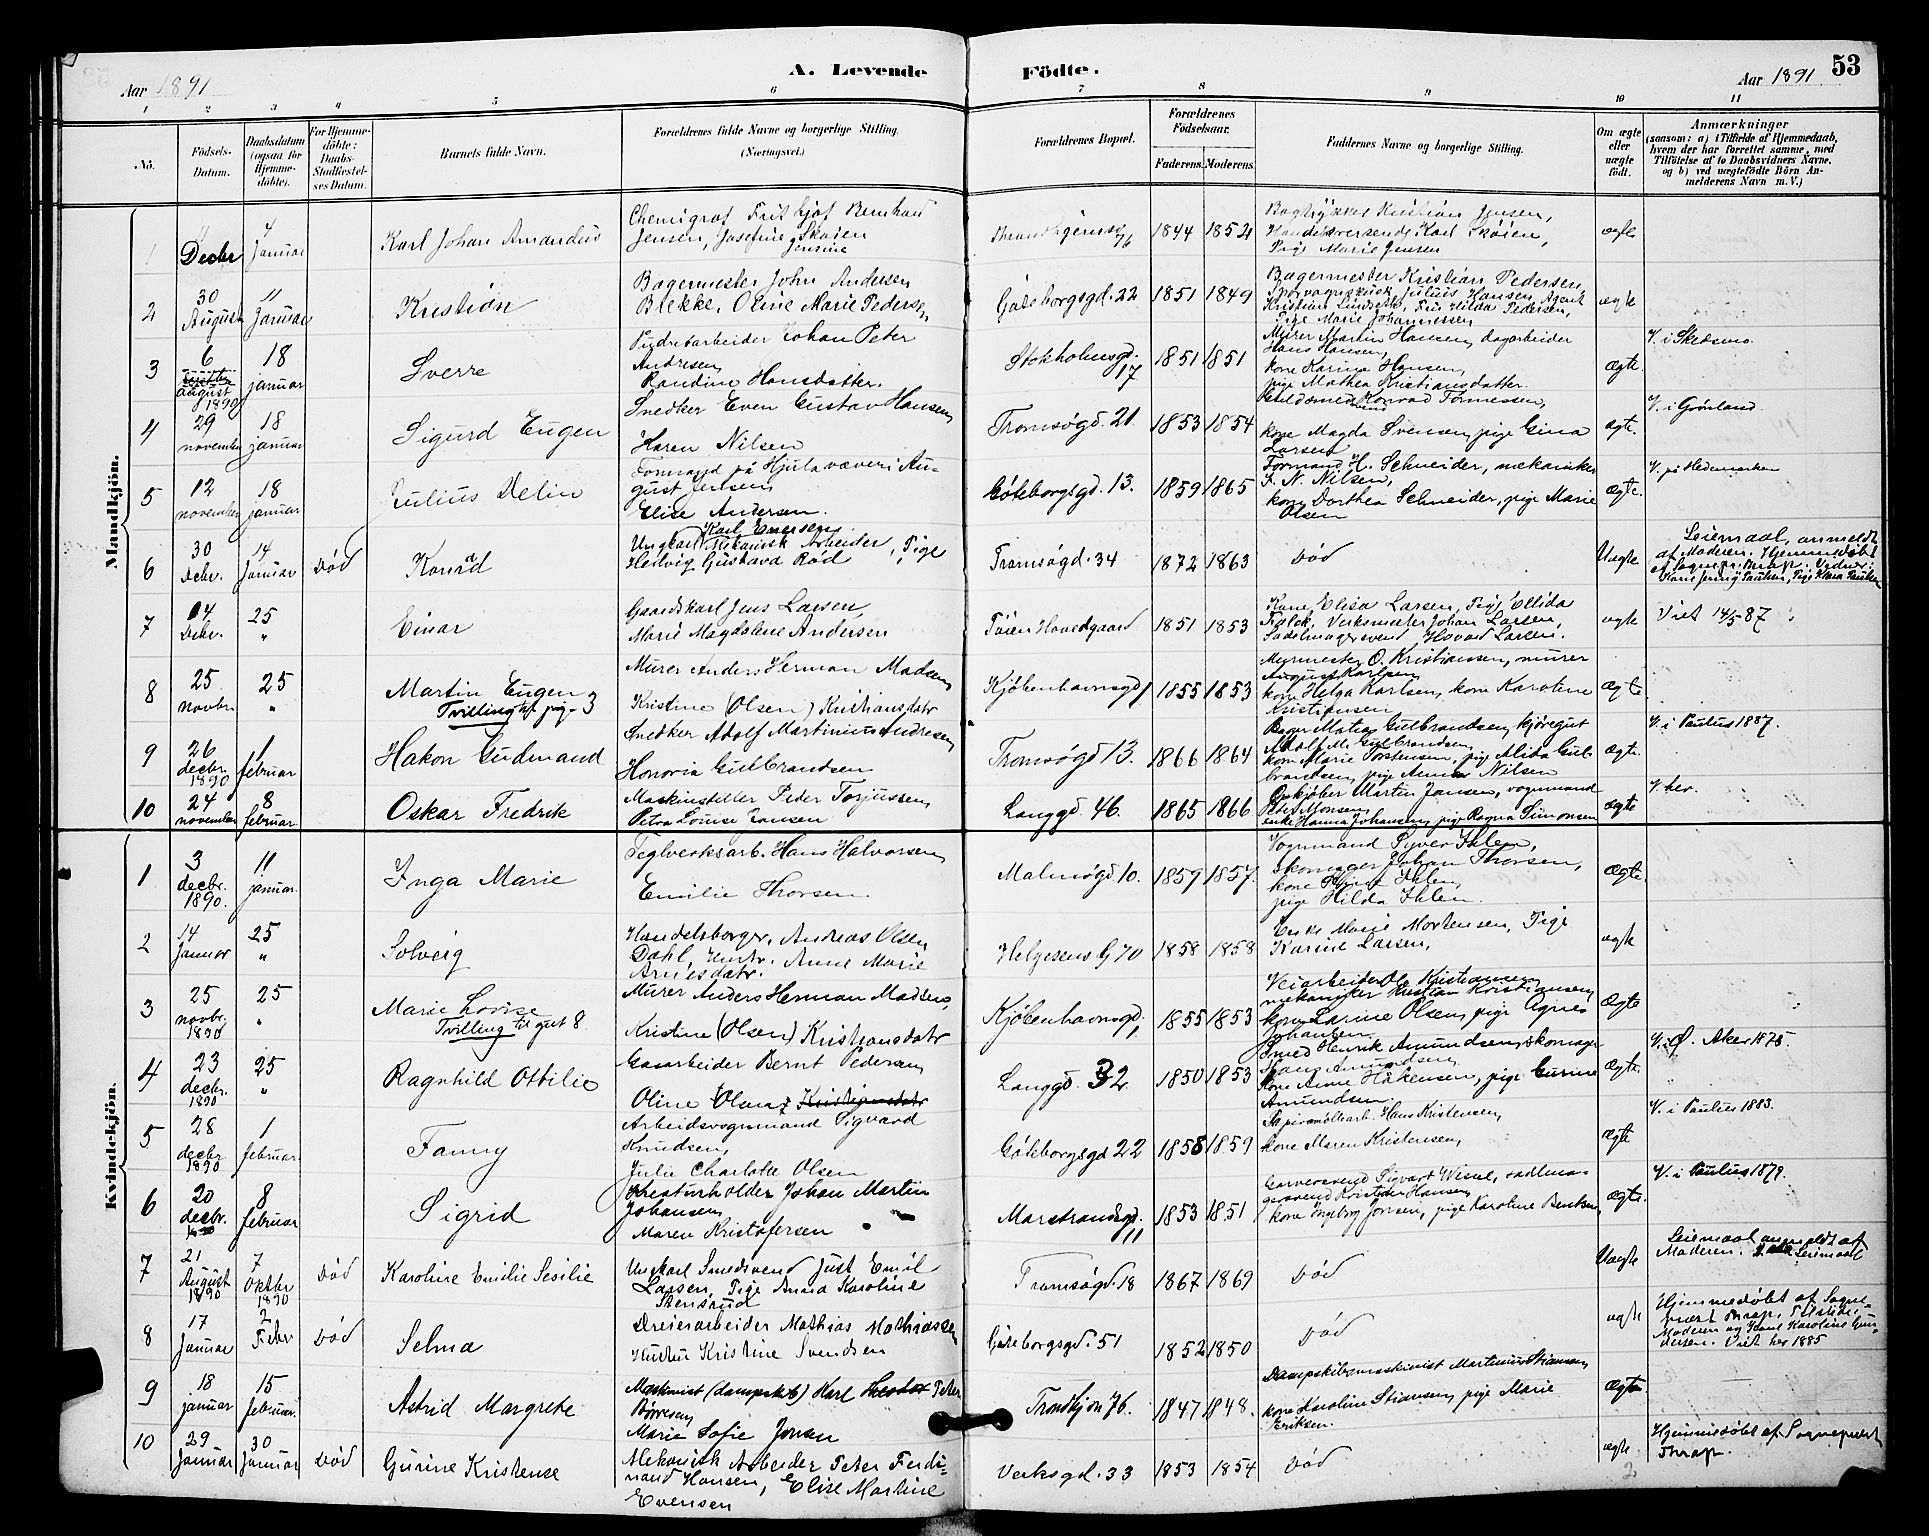 Aar 1891
A. Levende Födte.
Aar 1891
53
1 2 3 4 5 6 7 8 9 10 11
No.
Födsels-Datum.
Daabsdatum (ogsaa for Hjemme-döbte).
For Hjemme-döbte: Daabs-Stadfæstel-ses Datum.
Barnets fulde Navn.
Forældrenes fulde Navne og borgerlige Stilling.
(Næringsvei.)
Forældrenes Bopæl.
Forældrenes Födselsaar.
Faderens. Moderens.
Faddernes Navne og borgerlige Stilling.
Om ægte eller uægte födt.
Anmærkninger
(saasom: a) i Tilfælde af Hjemmedaab,
hvem der har forrettet samme, med
Tilföielse af to Daabsvidners Navne.
og b) ved uægtefödte Börn An-
melderens Navn m. V.)
Mandkjön.
1 Decbr 4 Januar Karl Johan Amandus
Chemigraf Frithjof Bernhard
Jensen, Josefine Skøien
Jensine
1844 1852
Kristian Jensen,
Handelsreisende Karl Skøien,
Pige Marie Jensen
ægte
2 30 August 11 Januar Kristian
Bagermester John Andersen
Blekke, Oline Marie Pedersen
Göteborgsgd. 22 1851 1849
Bagermester Kristian Pedersen
Sporvognskusk Julius Hansen, Agent
Kristian Lindseth, Fru Hilda Pedersen,
Pige Marie Johannessen
ægte
3 6 august 1890 18 januar Sverre
Pudretarbeider Johan Peter
Andresen
Randine Hansdatter.
Stokholmsgd. 17 1851 1851
Murer Martin Hansen, dagarbeider
Hans Hansen,
kone Karine Hansen,
pige Mathea Kristiansdatter.
Ægte.
V. i Skedsmo.
4 29 november 18 januar Sigurd Eugen
Snedker Even Gustav Hansen
Karen Nilsen
Tromsøgd. 21 1853 1854
Guldsmedsvend Konrad Tønnessen,
kone Magda Svensen, pige Gina
Larsen
ægte.
V. i Grønland.
5 12 november 18 januar Julius Delin
Formand på Hjula væveri Au-
gust Jensen,
Elise Andersen.
Göteborgsgd. 13. 1859 1865
Formand H. Schneider, mekaniker
F. N. Nilsen,
kone Dorthea Schneider, pige Marie
Olsen
Ægte.
V. på Hedemarken
6 30 Decbr. 14 Januar Död Konrad
Ungkarl Karl Enersen
Mekanisk Arbeider, Pige
Hedvig Gustava Rød
Tromsøgd. 34 1872 1863 Död Uægte
Leiemaal, anmeldt
af Moderen. Hjemmedøbt
af Sognepr. Thrap. Vidner:
Kone Jenny Paulsen, Pige Klara Paulsen
7 14 Decbr. 25 " Einar
Gaardskarl Jens Larsen,
Marie Magdalene Andersen
Töien Hovedgaard 1851 1853
Kone Elisa Larsen, Pige Ellida
Fialok, Verksmester Johan Larsen,
Sadelmagersvend Havard Larsen.
ægte
Viet 14/5-87
8 25 novbr. 25 " Martin Eugen
Tvilling t. pige 3
Murer Anders Herman Madsen
Kristine (Olsen) Kristiansdatr
Kjöbenhavnsgd 1 1855 1853
Murmester O. Kristiansen, murer
August Karlsen
kone Helga Karlsen, kone Karoline
Kristiansen
Ægte
9 26 decbr. 1890 1 februar Hakon Gudmand
Snedker Adolf Martinius Andresen
Honoria Gulbrandsen
Tromsøgd 13. 1866 1864
Matias Gulbrandsen, kjøregut
Adolf M. Gulbrandsen,
kone Marie Torstensen, pige Alida Gul-
brandsen, pige Anna Nilsen
Ægte.
V. i Paulus 1887.
10 24 november 8 februar Oskar Fredrik
Maskinsteller Peder Torjussen
Petra Louise Jansen
Langgd. 46. 1865 1866
Opkjøber Martin Jansen, vognmand
Peder Monsen,
enke Hanna Johansen, pige Ragna Simonsen
ægte
V. her.
Kvindekjön.
1 3 decbr. 1890. 11 januar Inga Marie
Teglverksarb. Hans Halvorsen,
Emilie Thorsen
Malmøgd 10. 1859 1857.
Vognmand Syver Ihlen,
skomager Johan Thorsen,
kone Ihlen,
pige Hilda Ihlen.
Ægte.
2 14 Januar 25 " Solveig
Handelsborger. Andreas Olsen
Dahl, Hustr. Anne Marie
Arnesdatr.
Helgesens G 70 1858 1858
Enke Marie Mortensen, Pige
Karine Larsen,
ægte
3 25 novbr. 1890 25 " Marie Lovise
Tvilling til gut 8.
Murer Anders Herman Madsen,
Kristine (Olsen) Kristiansdatr
Kjöbenhavnsgd. 1 1855 1853
Veiarbeider Ole Kristiansen,
mekaniker Kristian Kristiansen,
kone Larine Olsen, pige Agnes
Johansen.
Ægte
4 23 decbr. 1890 25 " Ragnhild Ottilie
Gasarbeider Bernt Pedersen
Oline Olava Kristiansdatr
Langgd. 32 1850 1853
Smed Henrik Amundsen, skomager
Hans Amundsen
kone Anne Håkensen, pige Gurine
Amundsen.
Ægte.
V. i Ø. Aker 1878.
5 28 decbr. 1890 1 februar Fanny
Arbeidsvognmand Sigvard
Knudsen,
Julie Charlotte Olsen
Göteborgsgd 22 1858 1859
Papirmøllearb. Hans Kristensen,
kone Maren Kristensen,
Ægte
V. i Paulus 1883.
6 20 decbr. 8 februar Sigrid
Kreaturholder Johan Martin
Johansen
Maren Kristofersen
Marstrandsgd. 11 1853 1851
Garversvend Sigvart Wesel, sadelma-
gersvend Kristian Hansen
kone Ingeborg Jonsen, pige Karoline Bentsen
Ægte.
V. i Paulus 1879.
7 21 August 1890 7 Oktbr 1890 Död Karoline Emilie Sesilie
Ungkarl Smedsvend Just Emil
Larsen, Pige Anna Karoline
Stensrud
Tromsøgd. 18 1867 1869 Död Uægte
Leiemaal anmeldt af
Moderen. 2det Leiemaal
8 17 Januar 2 Febr Död Selma
Dreierarbeider Mathias Mathiassen
Hustru Kristine Svendsen
Göteborgsgd. 51 1852 1850 Död ægte
Hjemmedøbt af Sogne-
præst Thrap, Tilstede:
Moderen og Karoline Gun-
dersen. Viet her 1885
9 18 januar 15 februar Astrid Margrete
Maskinist (dampskib) Karl Peter
Børresen
Marie Sofie Jonsen
Trondhj. 76. 1847 1848.
Dampskibsmaskinist Martinius Stiansen
kone Karoline Stiansen, pige Marie
Eriksen.
Ægte
10 29 Januar 30 Januar Död Gurine Kristense
Mekanisk Arbeider Peter Ferdi-
nand Hansen, Elise Martine
Evensen
Verksgd. 33 1853 1854 Död ægte.
Hjemmedøbt af Sognepræst
Thrap.
2